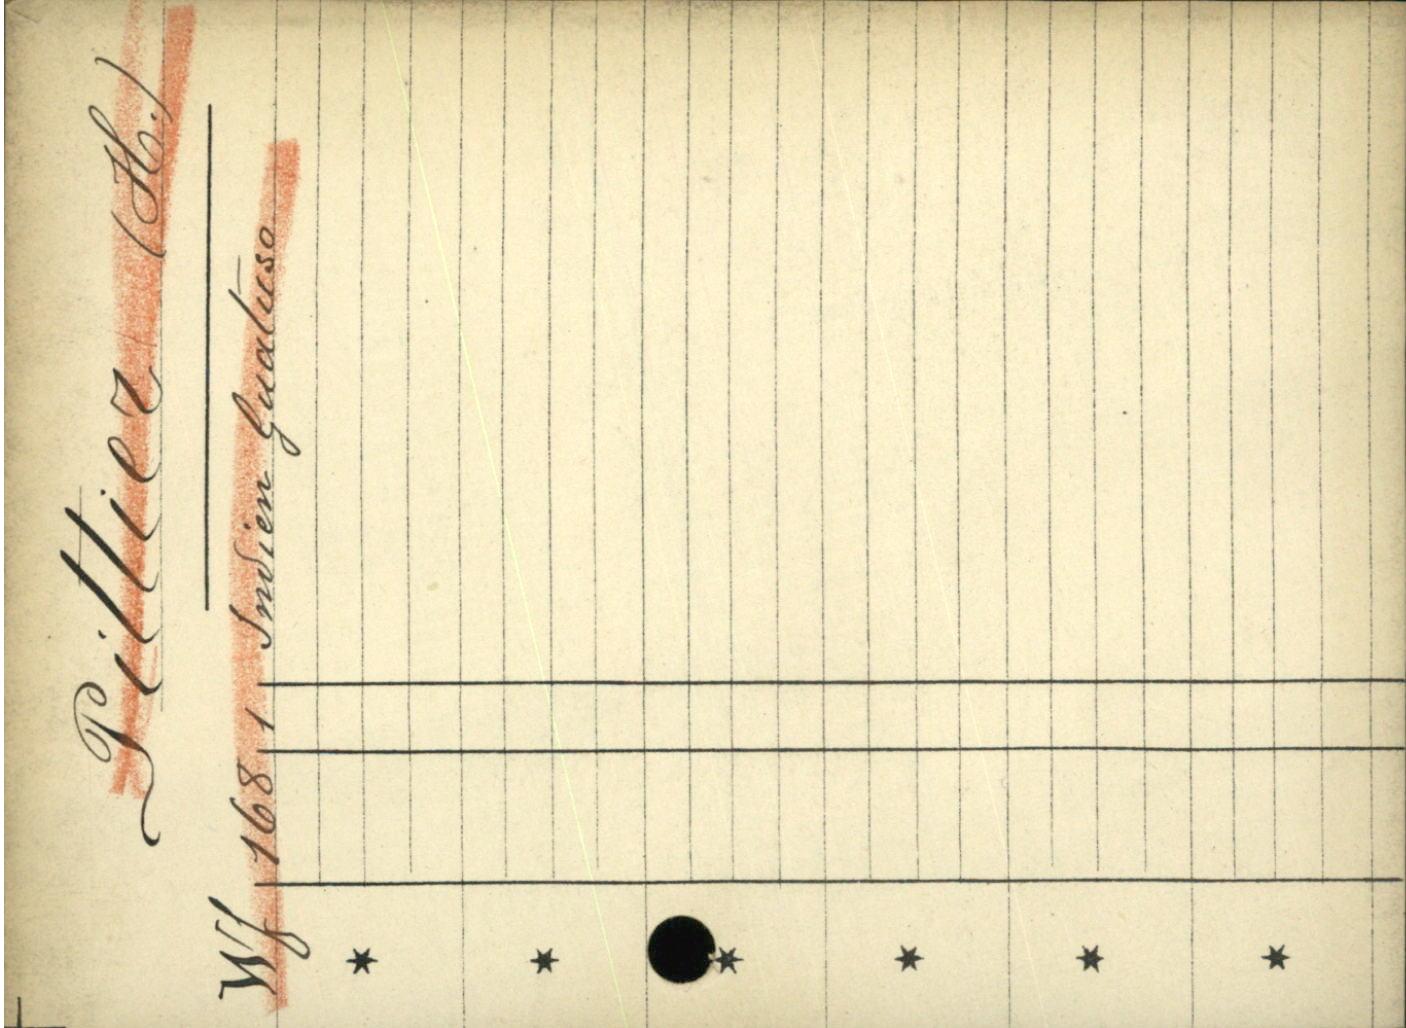 Pittier (H.)
Wf 168 1 Indien Guatuso